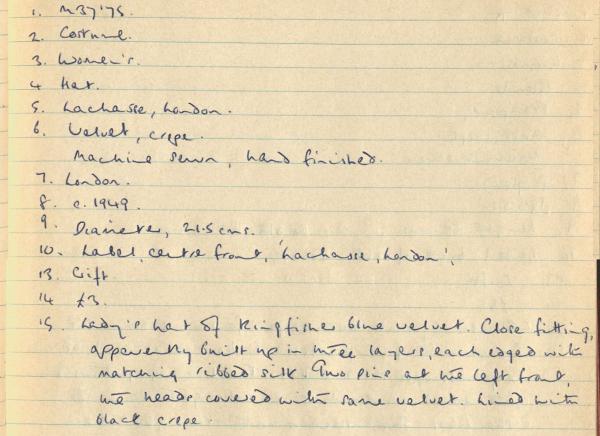 1. M37'75.
2. Costume.
3. Women's.
4 Hat.
5. Lachasse, London.
6. Velvet, crepe.
Machine sewn, hand finished.
7. London.
8. c.1949.
9. Diameter, 21.5 cms.
10. Label, centre front, 'Lachasse, London'.
13. Gift
14 £3.
15. Lady's hat of Kingfisher blue velvet. Close fitting,
apparently built up in three layers, each edged with
matching ribbed silk. Two pins at the left front,
the heads covered with same velvet. Lined with
black crepe.